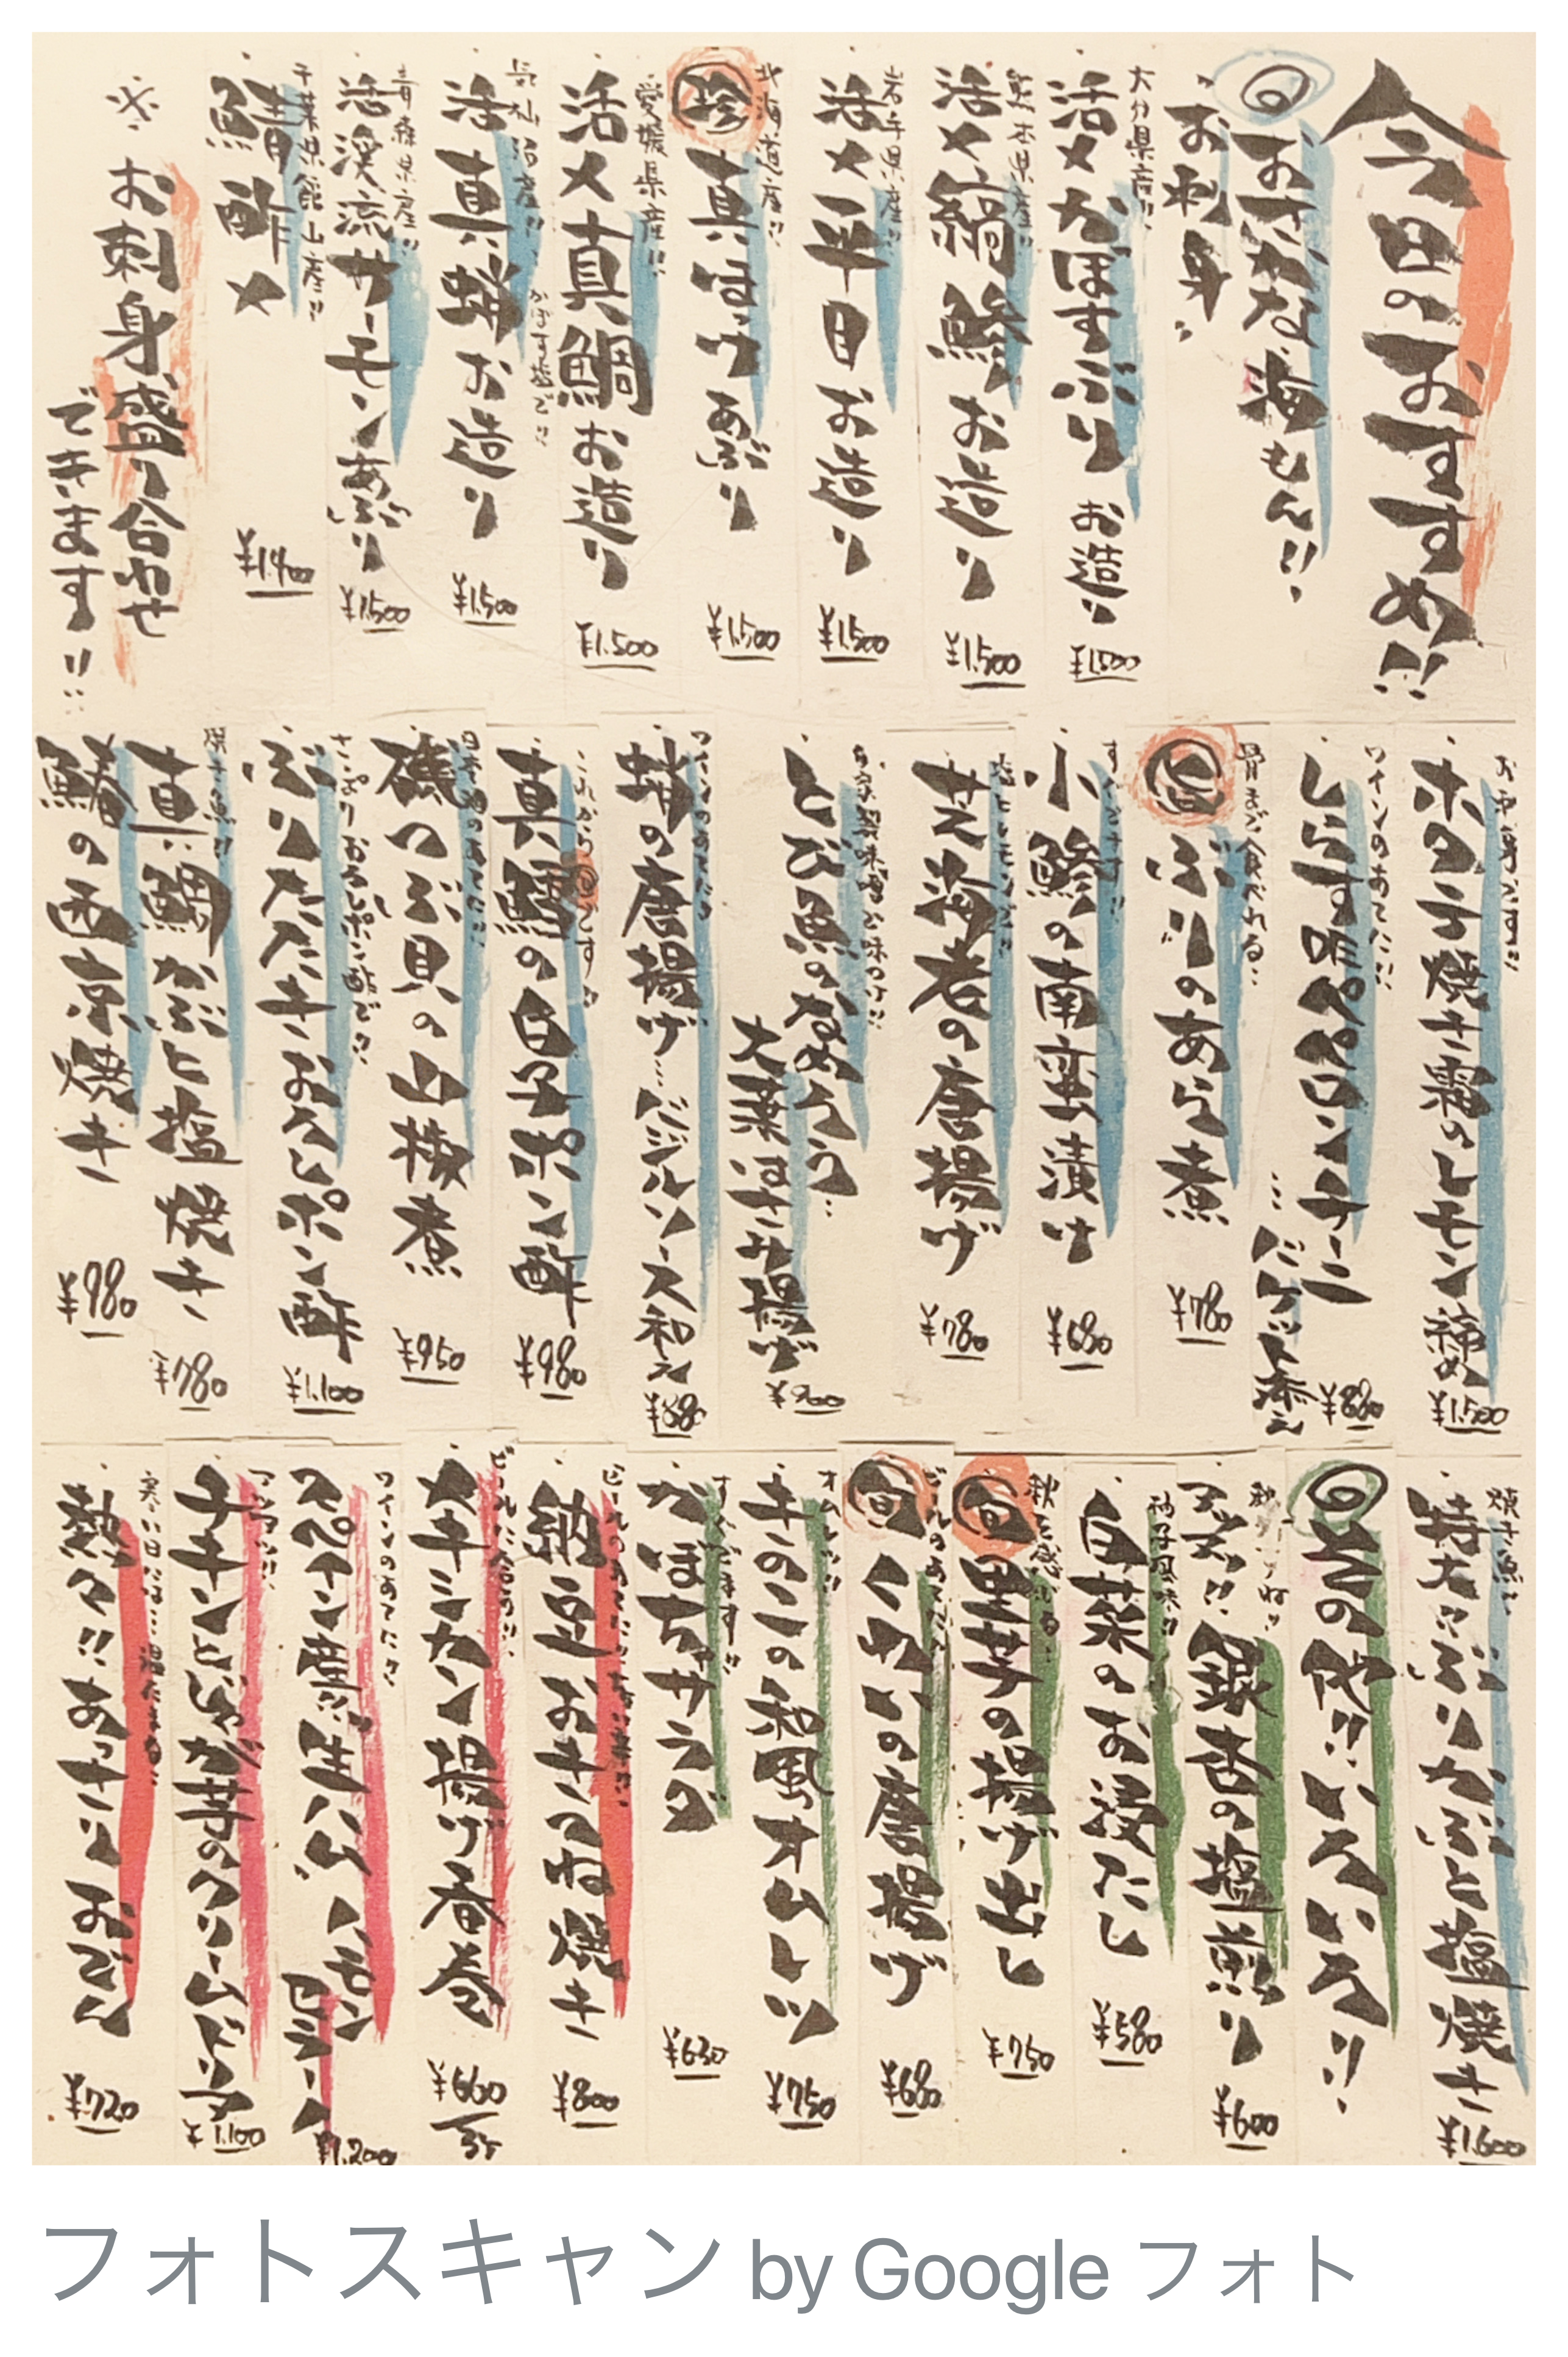 今日のおすすめ!!
◎おさかな海もん!!
お刺身
大分県産!!
活〆かぼすぶりお造り ¥1,500
熊本県産!!
活〆縞鯵お造り ¥1,500
岩手県産!!
活〆平目お造り ¥1,500
北海道産!!
珍 真ほっけあぶり ¥1,500
愛媛県産!!
活〆真鯛お造り ¥1,500
気仙沼産!! かぼす塩で!!
活真蛸お造り ¥1,500
青森県産!!
活渓流サーモンあぶり ¥1,500
千葉県館山産!!
鯖酢〆
※お刺身盛り合わせ
できます!!
お刺身です!!
ホのう焼き霜のレモン〆 ¥1,500
ワインのあてに!!
しらすペペロンチーニ…バケット添え ¥880
骨まで食べれる…
旨 ぶりのあら煮 ¥780
すぐでます!!
小鯵の南蛮漬け ¥680
塩とレモンで!!
芝海老の唐揚げ ¥780
自家製味噌で味つけ!!
とび魚のなめろう…
大葉はさみ揚げ ¥900
ワインのあてに!!
蛸の唐揚げ…バジルソース和え ¥880
これから旬です!!
真鱈の白子ポン酢 ¥980
日本酒のあてに!!
磯つぶ貝の山椒煮 ¥950
さっぱりおろしポン酢で!!
ぶりたたきおろしポン酢 ¥1,100
焼き魚!!
真鯛かぶと塩焼き ¥780
鰆の西京焼き ¥980
焼き魚!!
特大ぶりかぶと塩焼き ¥1,600
◎その他!!いろいろ!!
銀杏の塩煎り ¥600
柚子風味!!
白菜のお浸し ¥580
秋を感じる…
旬 里芋の揚げ出し ¥750
ビールのあてに!!
旬 くわいの唐揚げ ¥680
オムレツ!!
キのこの和風オムレツ ¥750
すぐでます!!
かぼちゃサラダ ¥630
納豆おきつね焼き ¥800
ビールに合う!!
メキシカン揚げ春巻 ¥660
ワインのあてに!!
スペイン産!!生ハム ハモンセラーノ ¥1,200
アツアツ!!
チキンとじゃが芋のクリームドリア ¥1,100
寒い日には…温たまる…
熱々!!あっさりおでん ¥720
フォトスキャン by Google フォト